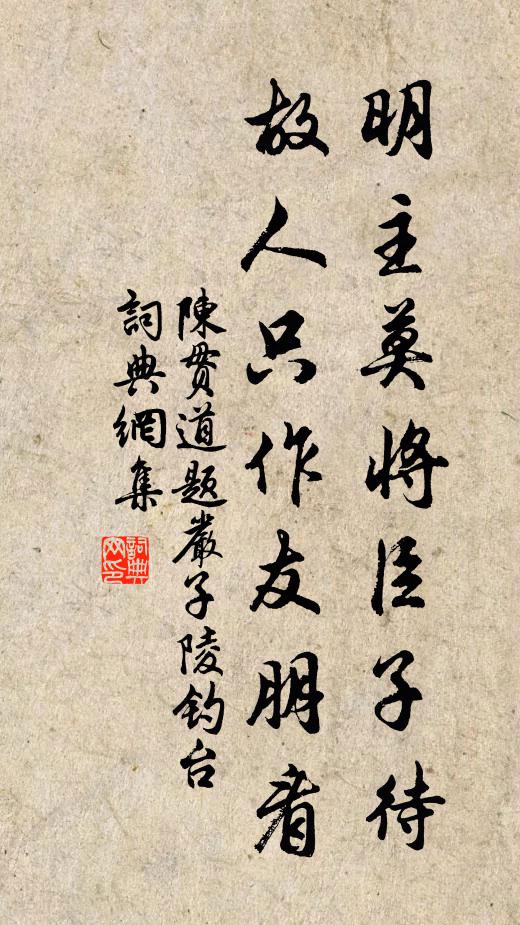 明主莫將臣子待
故人只作友朋看
陳貫道題嚴子陵釣台
詞典網集
詞典网印